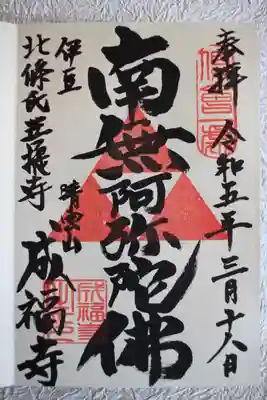 奉拝 令和五年三月十八日
南無阿弥陀佛
伊豆 晴雲山 成福寺
北條氏菩提寺